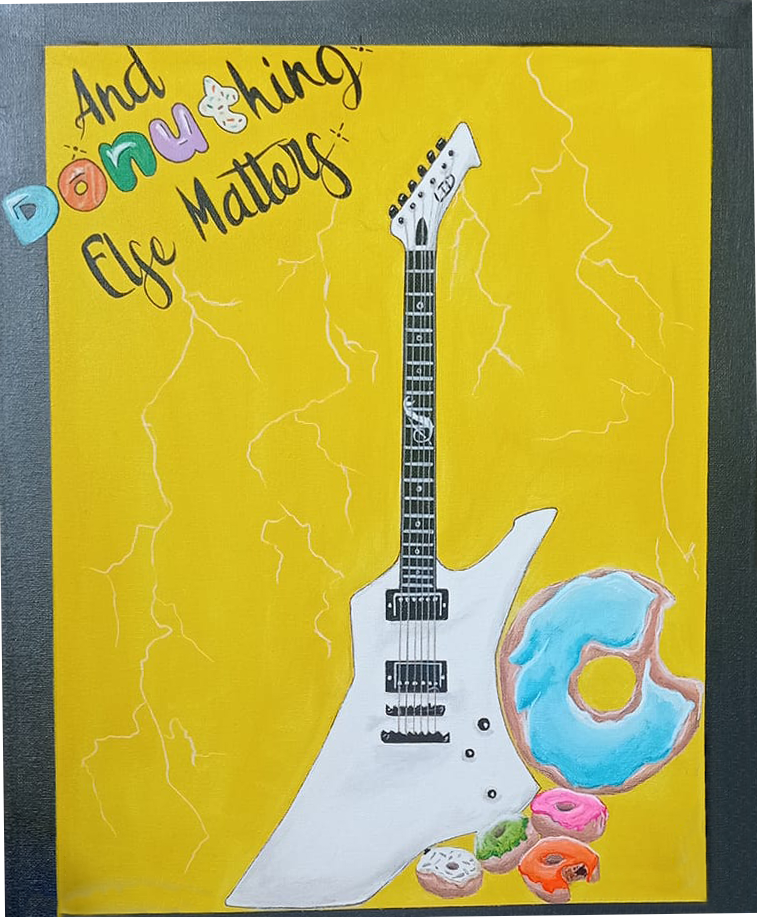 And
Donuthing
Else Matters
LTD